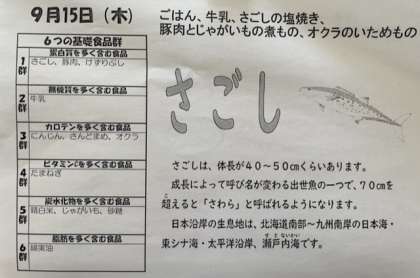 9月15日（木）
ごはん、牛乳、さごしの塩焼き、
豚肉とじゃがいもの煮もの、オクラのいためもの
6つの基礎食品群
1群
蛋白質を多く含む食品
さごし、豚肉、けずりぶし
2群
無機質を多く含む食品
牛乳
3群
カロテンを多く含む食品
にんじん、さんどまめ、オクラ
4群
ビタミンCを多く含む食品
たまねぎ
5群
炭水化物を多く含む食品
精白米、じゃがいも、砂糖
6群
脂肪を多く含む食品
綿実油
さごし
さごしは、体長が４０～５０㎝くらいあります。
成長によって呼び名が変わる出世魚の一つで、７０㎝を
超えると「さわら」と呼ばれるようになります。
日本沿岸の生息地は、北海道南部～九州南岸の日本海・
東シナ海・太平洋沿岸、瀬戸内海です。